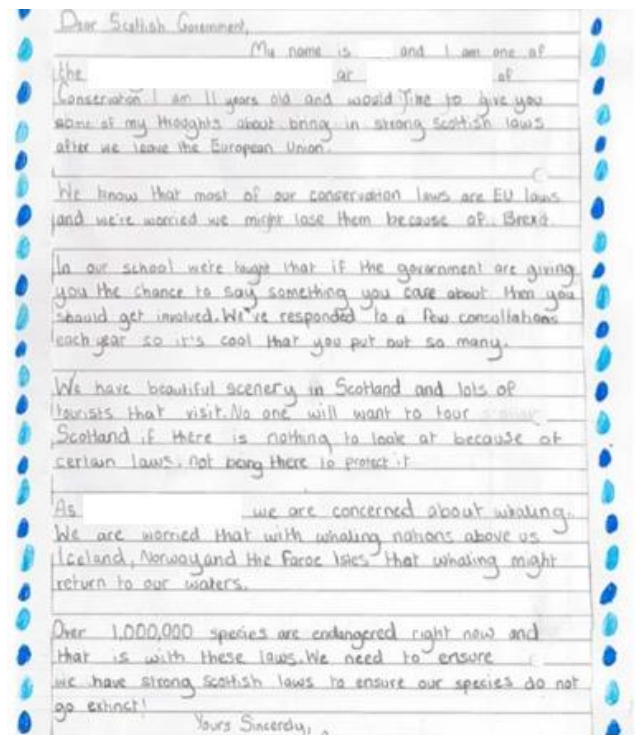 Dear Scottish Government,
My name is and I am one of
the at of
Conservation. I am 11 years old and would like to give you
some of my thoughts about bring in strong Scottish laws
after we leave the European Union.
We know that most of our conservation laws are EU laws
and we're worried we might lose them because of.. Brexit.
In our school we're taught that if the government are giving
you the chance to say something you care about then you
should get involved. We've responded to a few consultations
each year so it's cool that you put out so many.
We have beautiful scenery in Scotland and lots of
tourists that visit. No one will want to tour
Scotland if there is nothing to look at because of
certain laws. not being there to protect it
As we are concerned about whaling.
We are worried that with whaling nations above us
Iceland, Norway and the Faroe Isles that whaling might
return to our waters.
Over 1,000,000 species are endangered right now and
that is with these laws. We need to ensure
we have strong Scottish laws to ensure our species do not
go extinct!
Yours Sincerely,